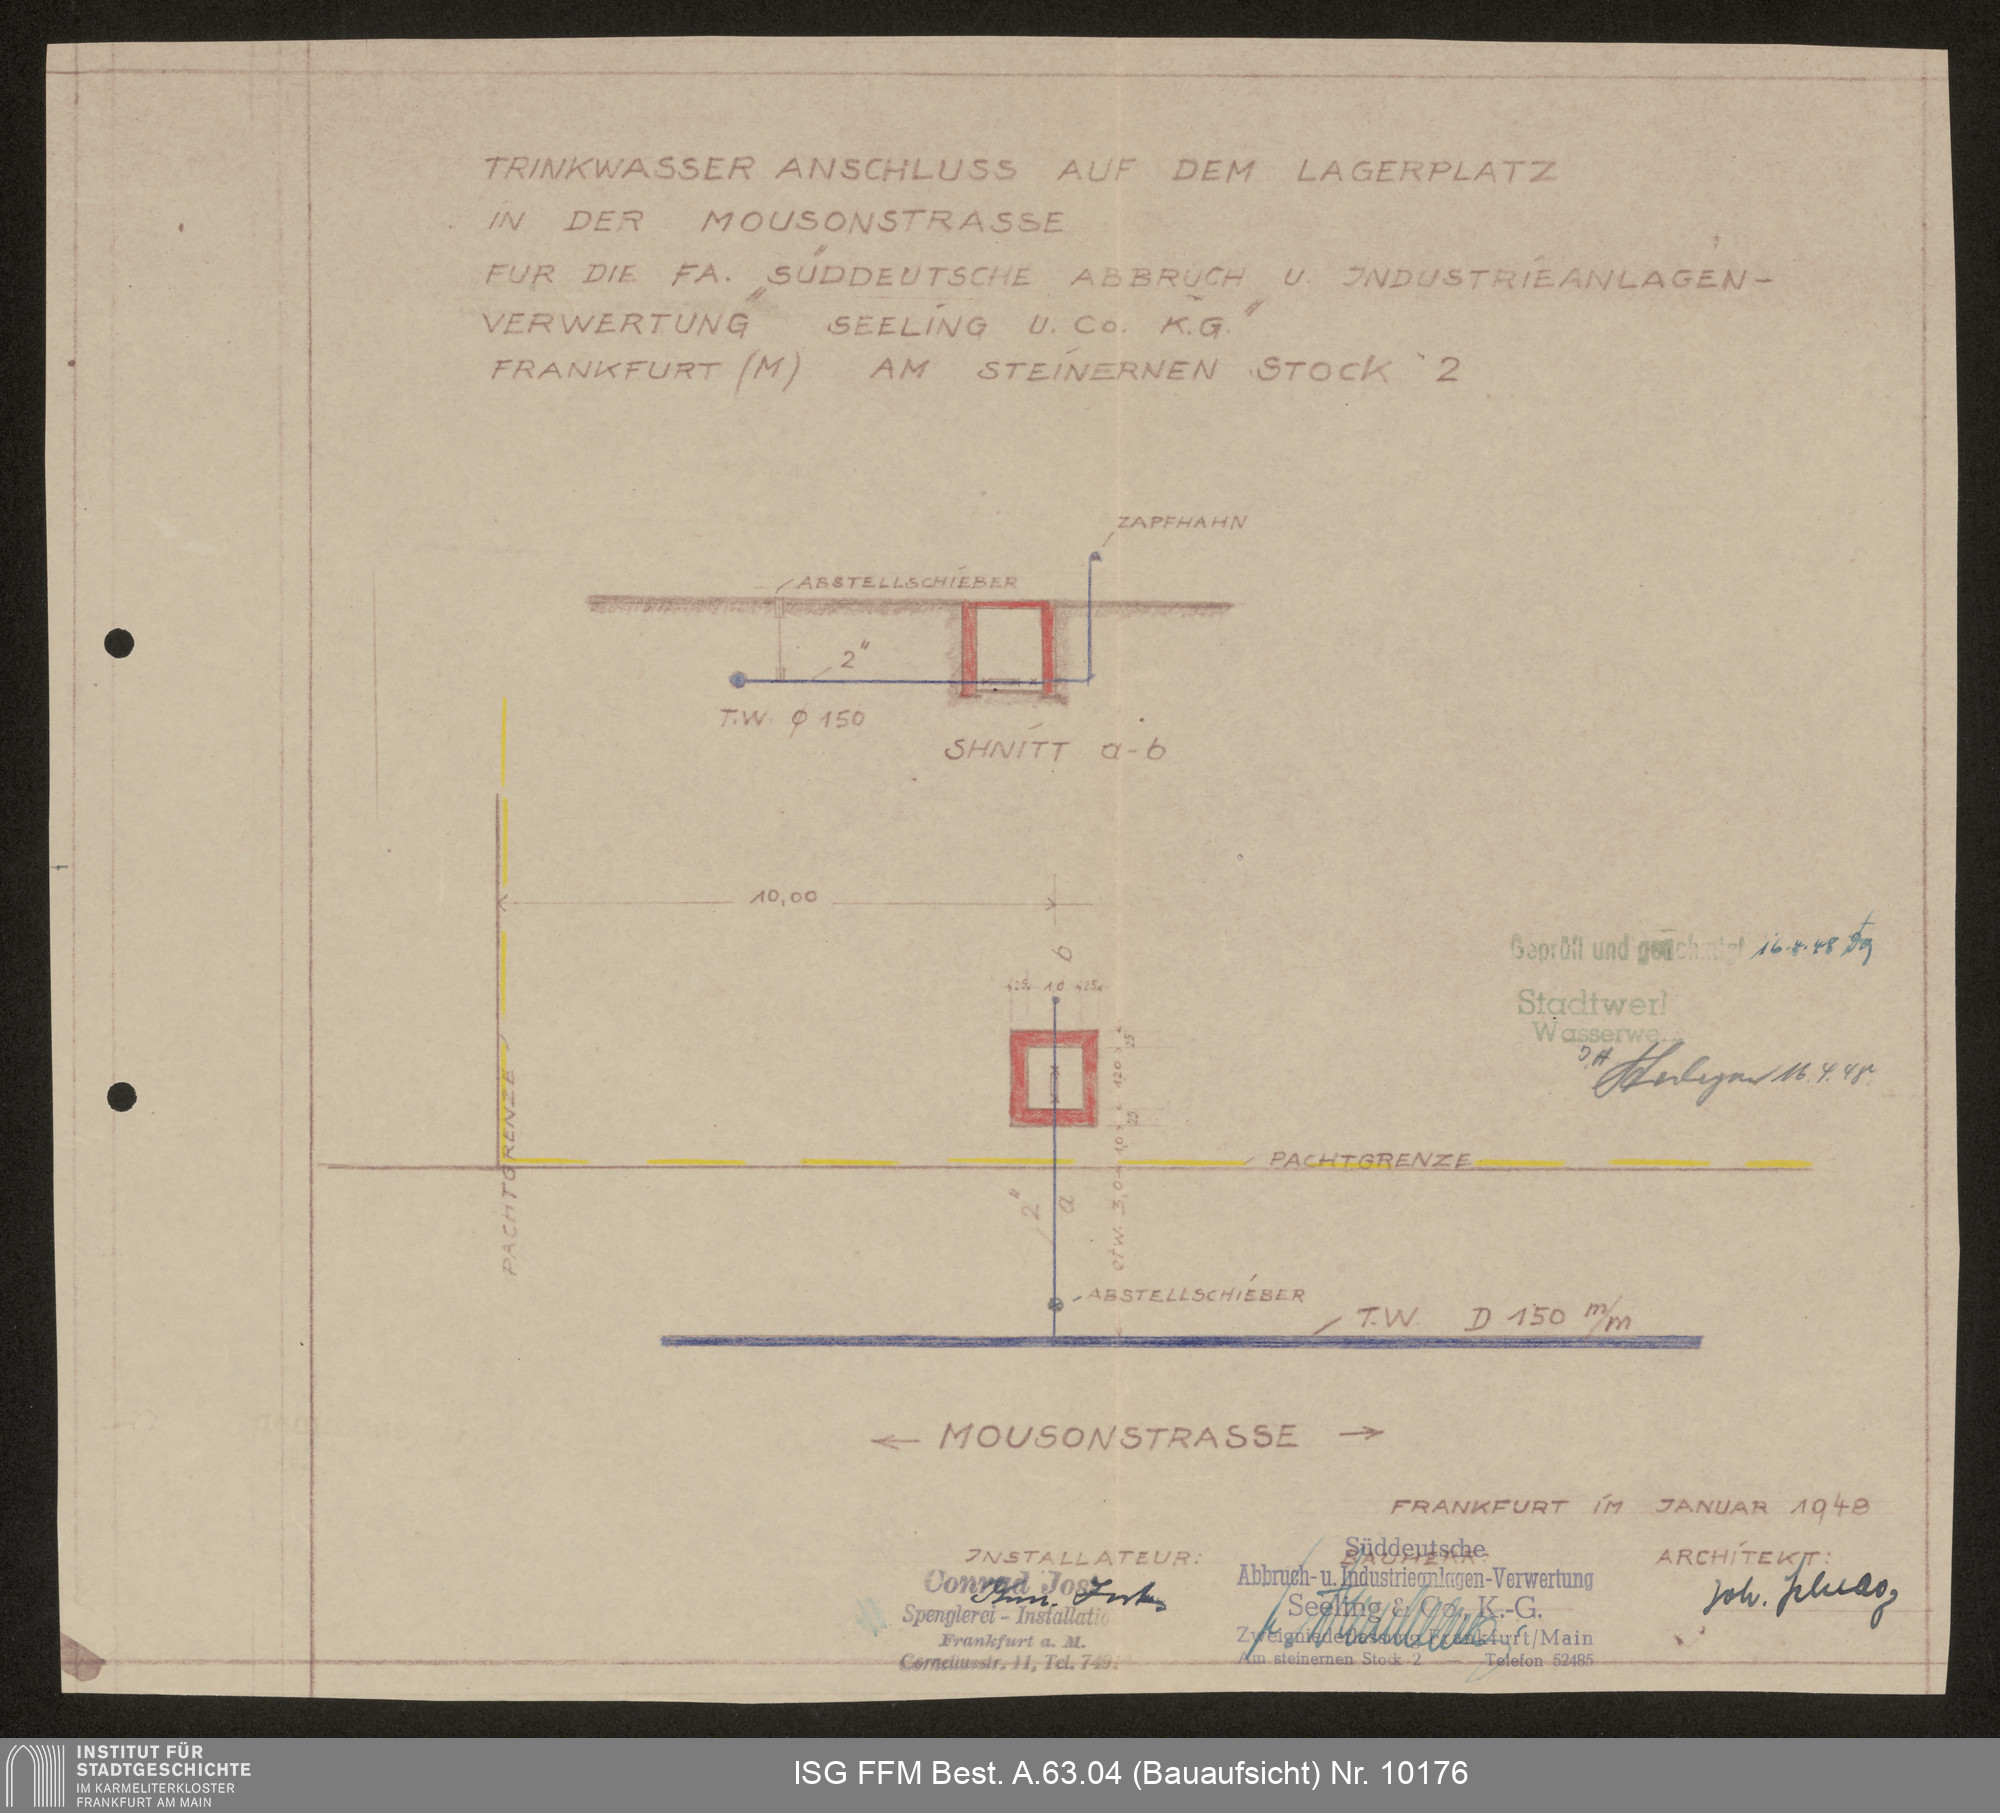 TRINKWASSER ANSCHLUSS AUF DEM LAGERPLATZ
IN DER MOUSONSTRASSE
FUR DIE FA. „SÜDDEUTSCHE ABBRUCH U. INDUSTRIEANLAGEN-
VERWERTUNG" SEELING U. Co. K.G."
FRANKFURT (M) AM STEINERNEN STOCK 2
ZAPFHAHN
ABSTELLSCHIEBER
2"
T.W. ϕ 150
SHNITT a-b
10,00
b
25 1,0 25
25
1,20
25
1,0
etw. 3,0
PACHTGRENZE
PACHTGRENZE
2"
a
ABSTELLSCHIEBER
T.W. D 150 m/m
Geprüft und 16.4.48
Stadtwerk
Wasserwe
16.4.48
← MOUSONSTRASSE →
FRANKFURT IM JANUAR 1948
INSTALLATEUR:
Conrad Jost
Spenglerei - Installatio
Frankfurt a. M.
Corneliusstr. 11, Tel. 749
BAUHERR:
Süddeutsche
Abbruch- u. Industrieanlagen-Verwertung
Seeling & Co. K.-G.
Zweigniederlassung Frankfurt/Main
Am steinernen Stock 2 — Telefon 52485
ARCHITEKT:
Joh.
INSTITUT FÜR
STADTGESCHICHTE
IM KARMELITERKLOSTER
FRANKFURT AM MAIN
ISG FFM Best. A.63.04 (Bauaufsicht) Nr. 10176